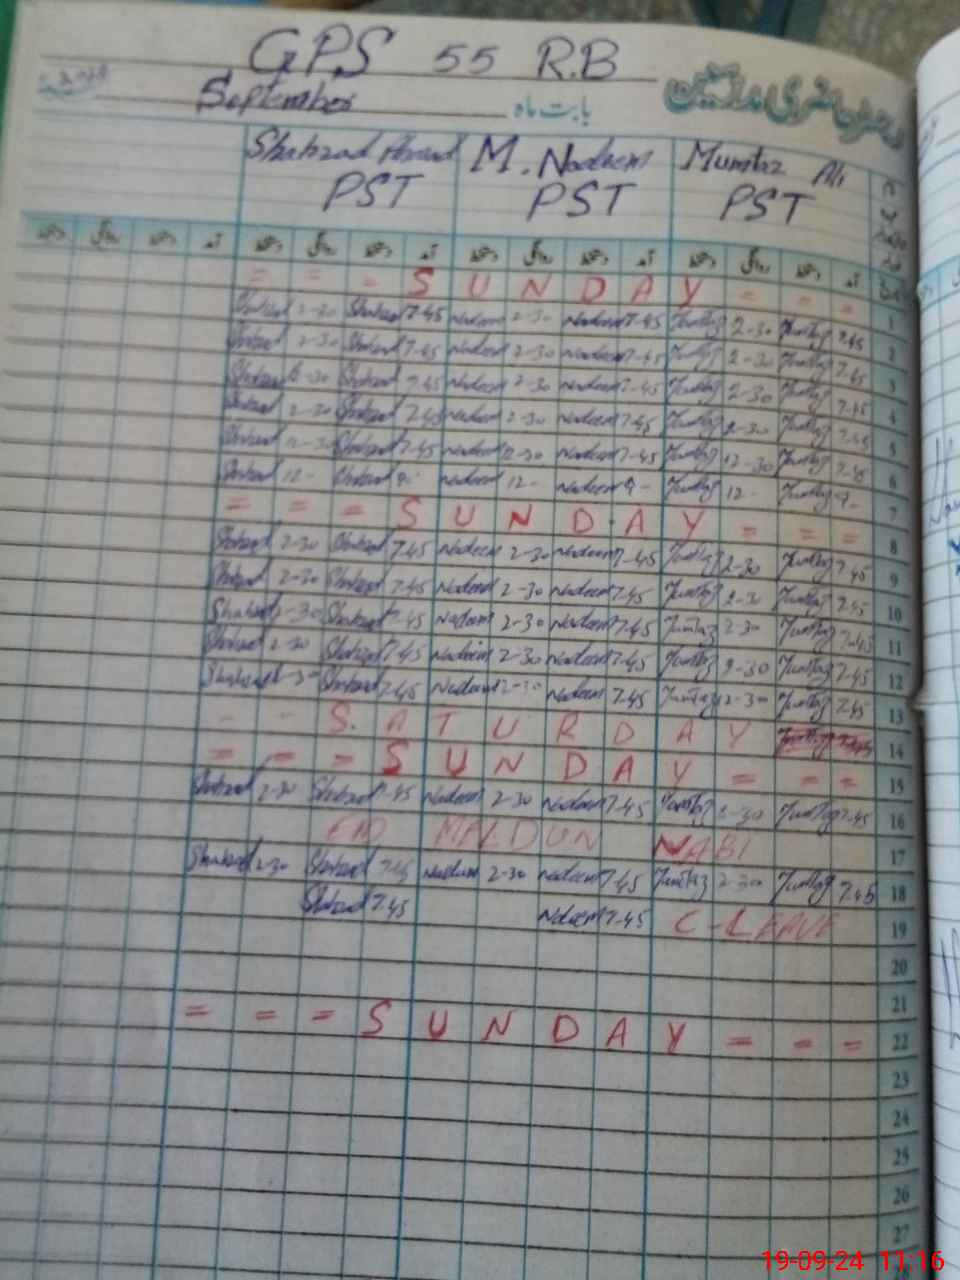 GPS 55 R.B
September بابت ماہ
Shahzad Ahmad M. Nadeem Mumtaz Ali
PST PST PST
= = = SUNDAY = = = 1
Shahzad 2-30 Shahzad 7-45 Nadeem 2-30 Nadeem 7-45 Mumtaz 2-30 Mumtaz 7-45 2
Shahzad 2-30 Shahzad 7-45 Nadeem 2-30 Nadeem 7-45 Mumtaz 2-30 Mumtaz 7-45 3
Shahzad 2-30 Shahzad 7-45 Nadeem 2-30 Nadeem 7-45 Mumtaz 2-30 Mumtaz 7-45 4
Shahzad 2-30 Shahzad 7-45 Nadeem 2-30 Nadeem 7-45 Mumtaz 2-30 Mumtaz 7-45 5
Shahzad 12-30 Shahzad 7-45 Nadeem 12-30 Nadeem 7-45 Mumtaz 12-30 Mumtaz 7-45 6
Shahzad 12- Shahzad Nadeem 12- Nadeem 9- Mumtaz 12- Mumtaz 9- 7
= = = SUNDAY = = = 8
Shahzad 2-30 Shahzad 7-45 Nadeem 2-30 Nadeem 7-45 Mumtaz 2-30 Mumtaz 7-45 9
Shahzad 2-30 Shahzad 7-45 Nadeem 2-30 Nadeem 7-45 Mumtaz 2-30 Mumtaz 7-45 10
Shahzad 2-30 Shahzad 7-45 Nadeem 2-30 Nadeem 7-45 Mumtaz 2-30 Mumtaz 7-45 11
Shahzad 2-30 Shahzad 7-45 Nadeem 2-30 Nadeem 7-45 Mumtaz 2-30 Mumtaz 7-45 12
Shahzad Shahzad 7-45 Nadeem 12-30 Nadeem 7-45 Mumtaz 12-30 Mumtaz 7-45 13
- - SATURDAY 14
= = = SUNDAY = = = 15
Shahzad 2-30 Shahzad 7-45 Nadeem 2-30 Nadeem 7-45 Mumtaz 2-30 Mumtaz 7-45 16
EID MELDUN NABI 17
Shahzad 2-30 Shahzad 7-45 Nadeem 2-30 Nadeem 7-45 Mumtaz 2-30 Mumtaz 7-45 18
Shahzad 7-45 Nadeem 7-45 C-LEAVE 19
20
21
= = = SUNDAY = = = 22
23
24
25
26
27
19-09-24 11:16